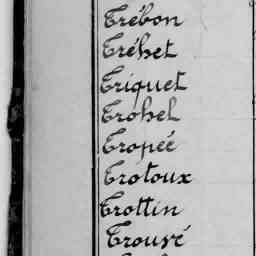 Trébon
Tréhet
Triquet
Trohel
Tropéé
Trotoux
Trottin
Trouvé